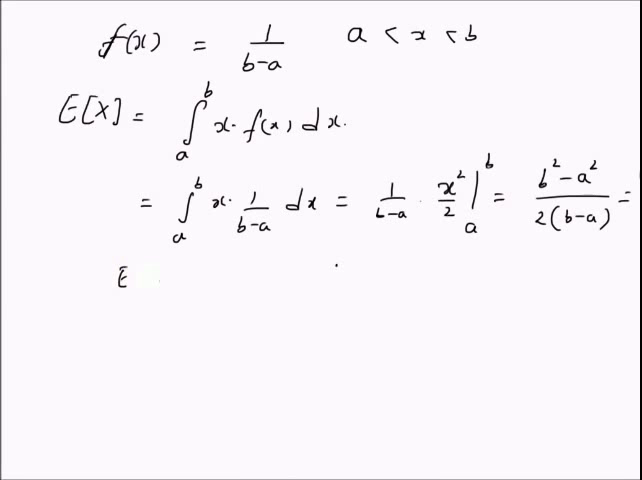 f(x) = 1/(b-a) a < x < b
E[X] = ∫_a^b x · f(x) dx.
= ∫_a^b x · 1/(b-a) dx = 1/(b-a) · x²/2 |_a^b = (b² - a²)/(2(b-a)) =
E